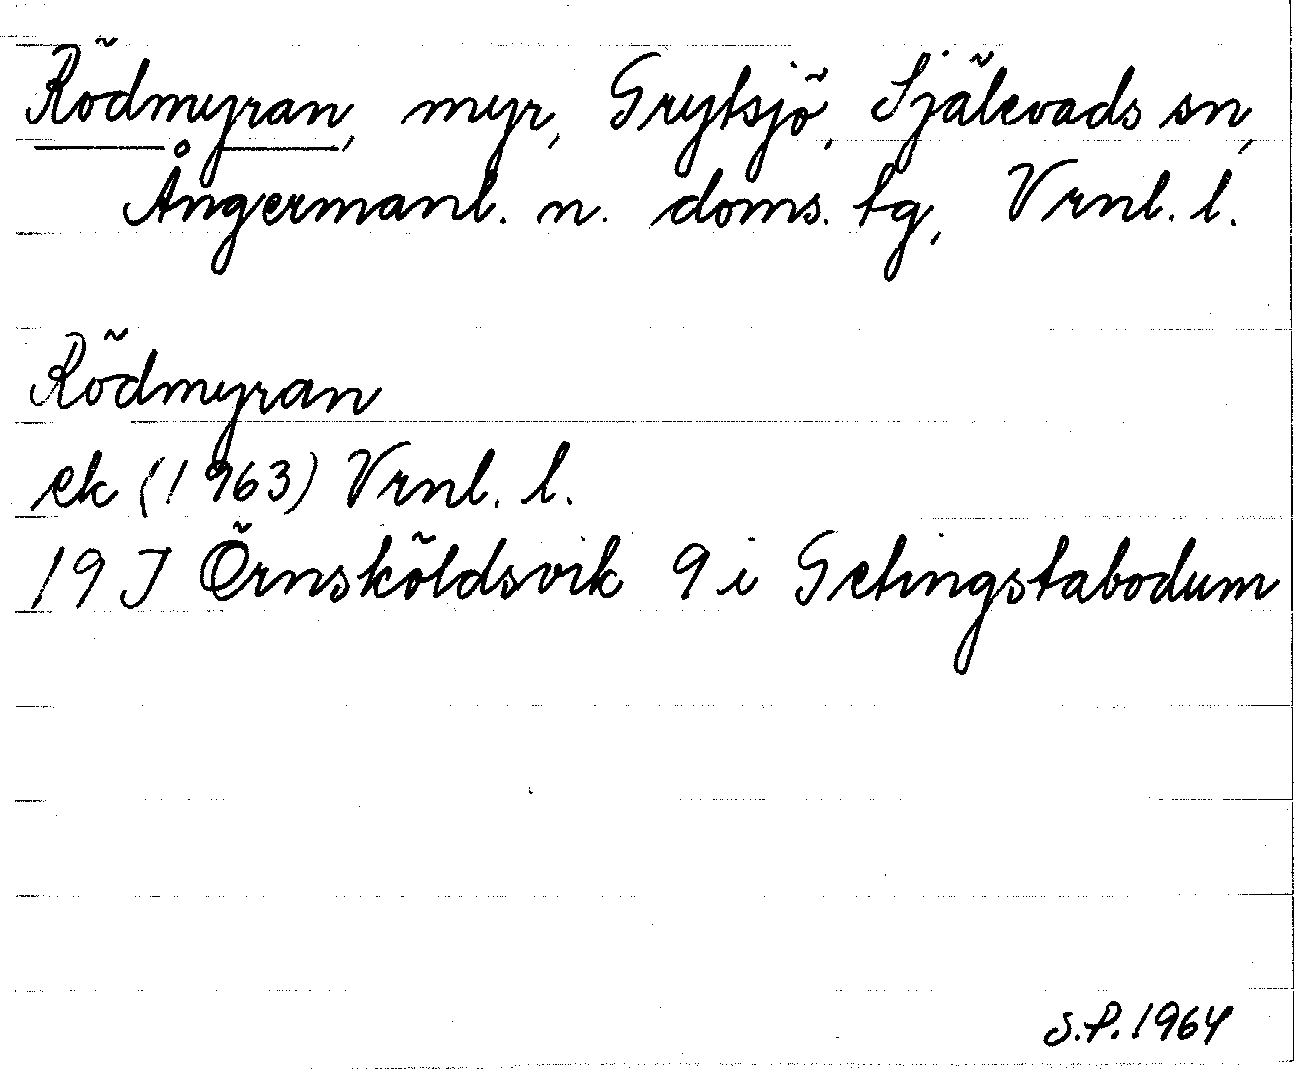 Rödmyran, myr, Grytsjö, Själevads sn,
Ångermanl. n. doms. tg, Vrnl. l.
Rödmyran
ek (1963) Vrnl. l.
19 J Örnsköldsvik 9 i Getingstabodum
S.P. 1964